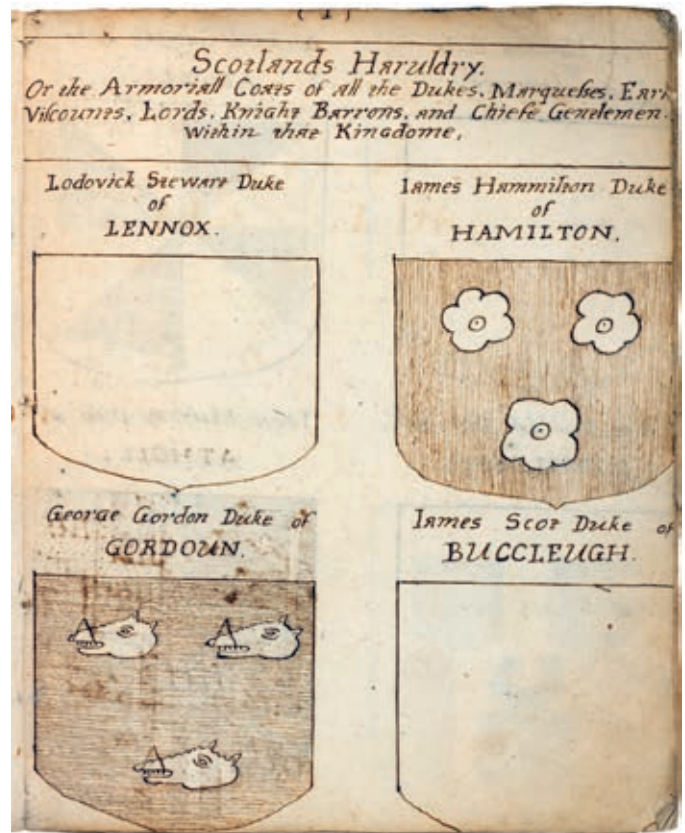 ( 1 )
Scotlands Haruldry.
Or the Armoriall Coats of all the Dukes, Marquesses, Earl
Viscounts, Lords, Knight Barrons, and Chiefe Gentlemen.
within that Kingdome,
Lodovick Stewart Duke
of
LENNOX.
Iames Hammilton Duke
of
HAMILTON.
George Gordon Duke of
GORDOUN.
Iames Scot Duke of
BUCCLEUGH.